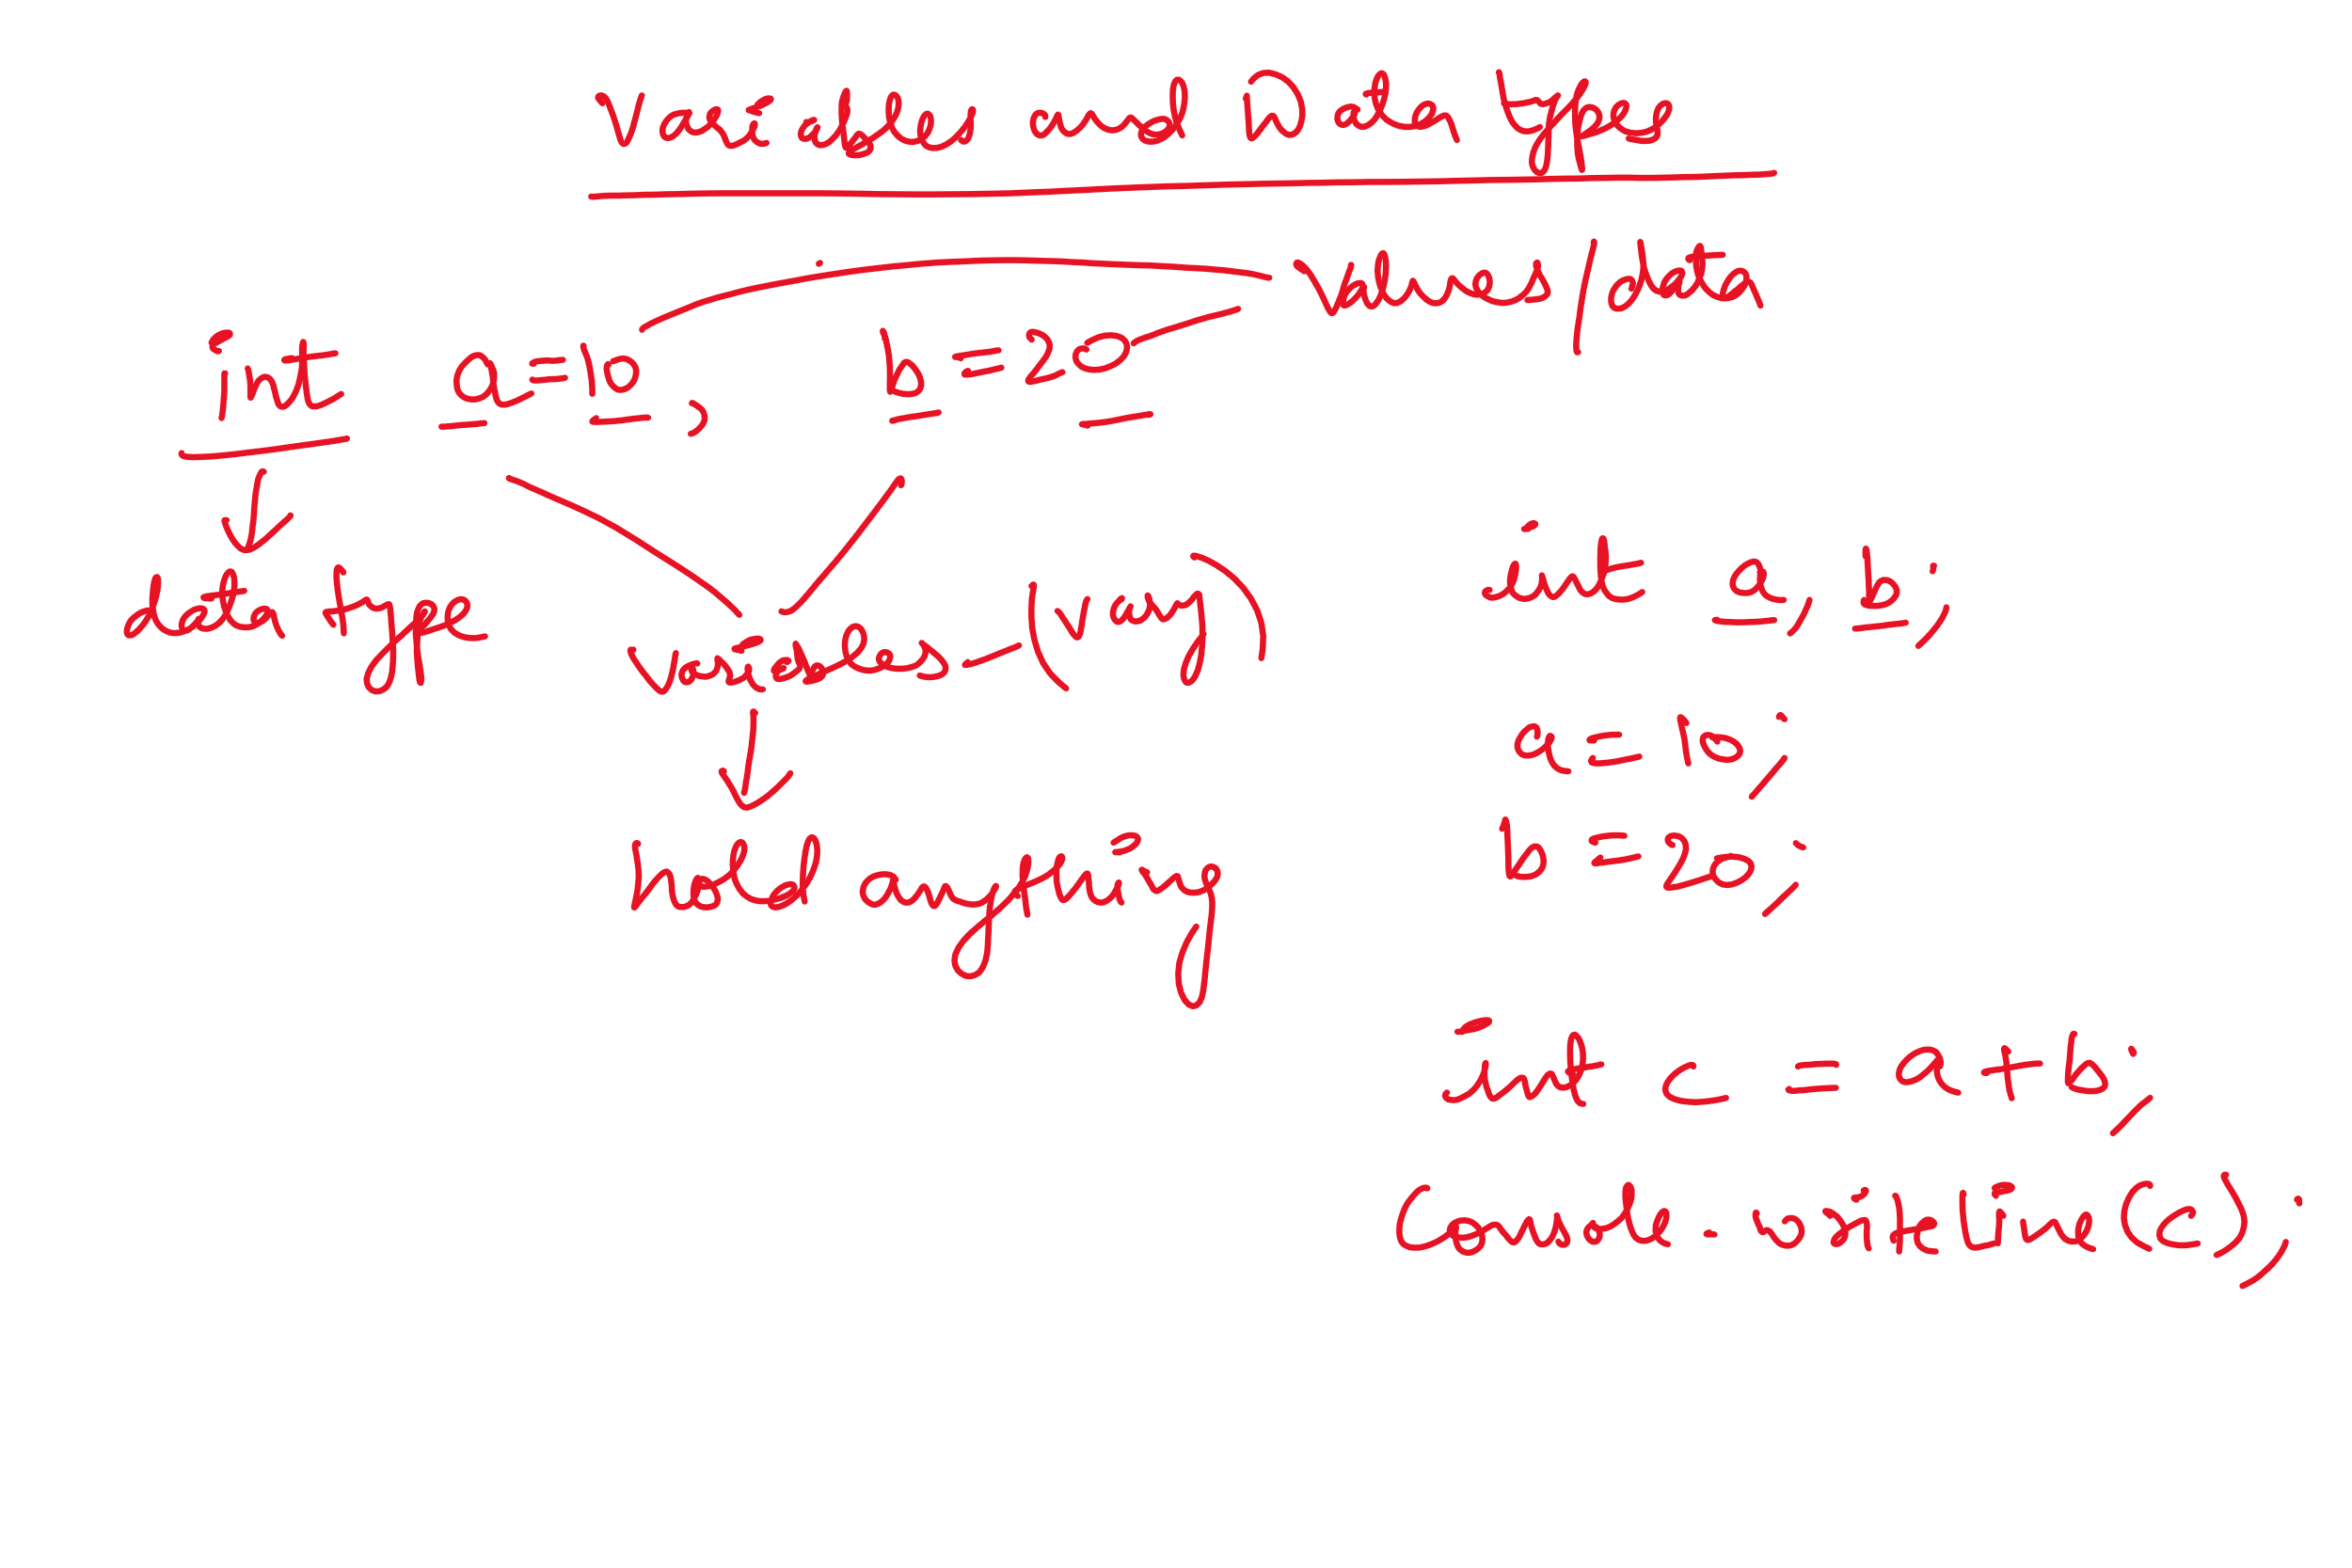 Variables and Data Types
values/data
int a=10, b=20
data type
variables (vary)
hold anything
int a, b;
a = 10;
b = 20;
int c = a+b;
Console.writeline(c);